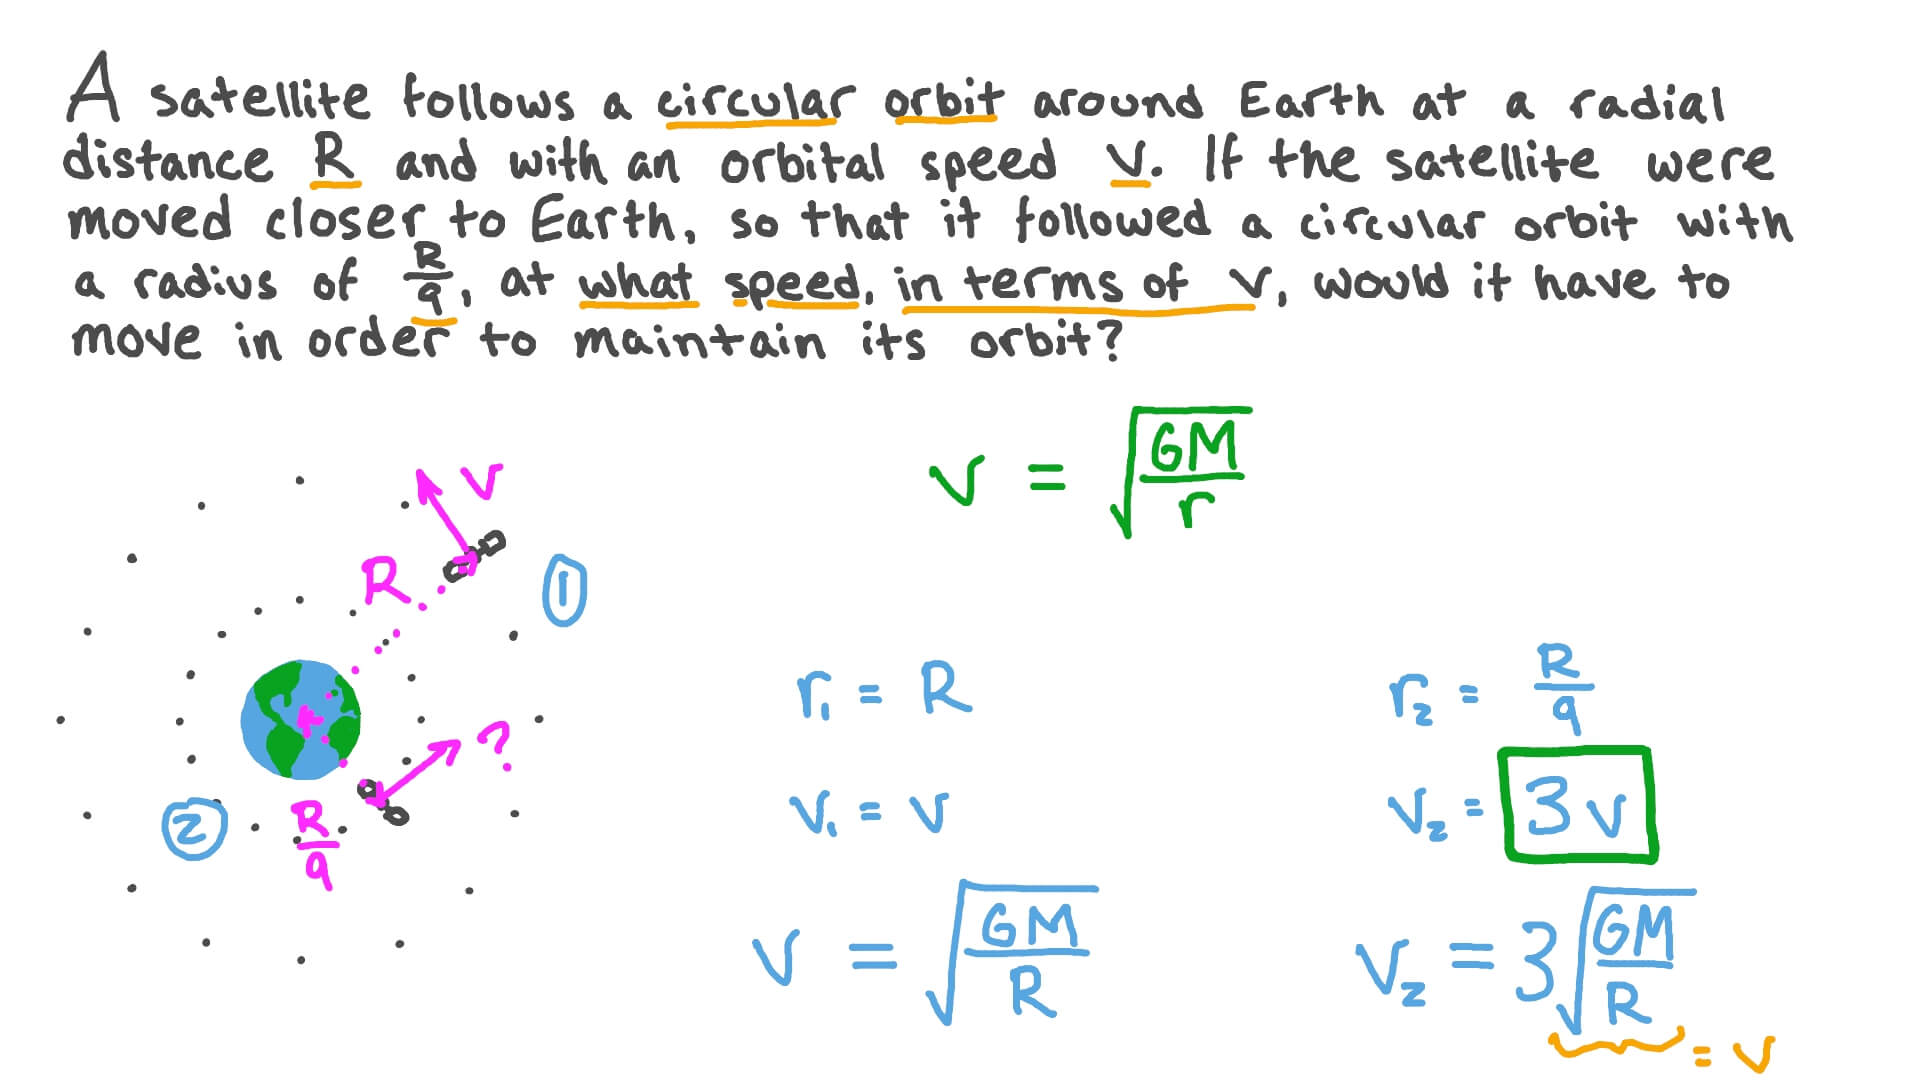 A satellite follows a circular orbit around Earth at a radial
distance R and with an orbital speed v. If the satellite were
moved closer to Earth, so that it followed a circular orbit with
a radius of R/9, at what speed, in terms of v, would it have to
move in order to maintain its orbit?
v = √(GM/r)
v
R
①
?
②
R/9
r₁ = R
v₁ = v
v = √(GM/R)
r₂ = R/9
v₂ = 3v
v₂ = 3√(GM/R)
= v